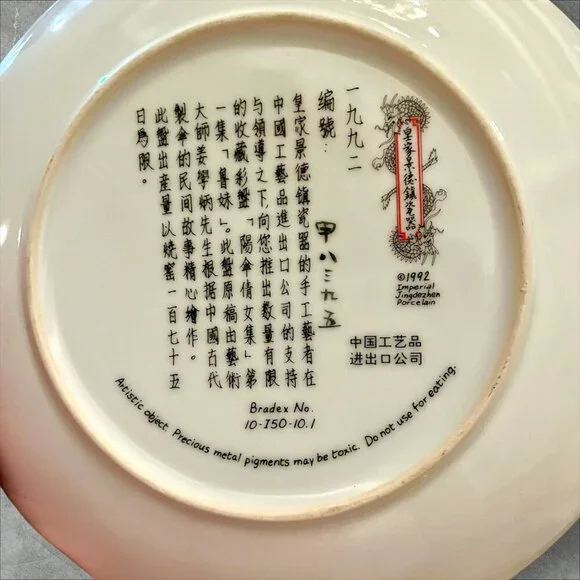 皇家景德鎮瓷器
©1992
Imperial
Jingdezhen
Porcelain
中国工艺品
进出口公司
一九九二
編號：甲八三九五
皇家景德鎮瓷器的手工藝者在
中國工藝品進出口公司的支持
与領導之下,向您推出數量有限
的收藏彩盤「陽傘倩女集」第
一集「魯妹」。此盤原稿由藝術
大師姜學炳先生根据中國古代
製傘的民間故事精心繪作。
此盤出産量以燒窑一百七十五
日爲限。
Bradex No.
10-I50-10.1
Artistic object. Precious metal pigments may be toxic. Do not use for eating.